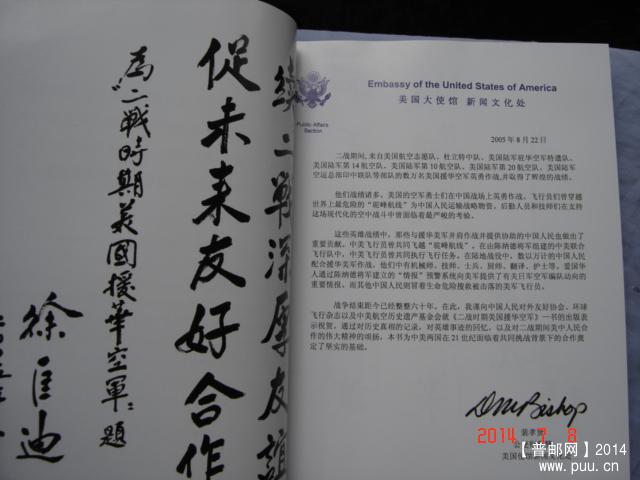 續二戰深厚友誼
促未来友好合作
為"二戰時期美國援華空軍"題
徐匡迪
Embassy of the United States of America
美国大使馆 新闻文化处
Public Affairs
Section
2005年8月22日
二战期间，来自美国航空志愿队、杜立特中队、美国陆军驻华空军特遣队、
美国陆军第14航空队、美国陆军第10航空队、美国陆军第20航空队、美国陆军
空运总部印中联队等部队的数万名美国援华空军英勇作战，并取得了辉煌的战绩。
他们战绩诸多。美国的空军勇士们在中国战场上英勇作战。飞行员们曾穿越
世界上最危险的"驼峰航线"为中国人民运输战略物资。后勤人员和技师们在支持
这场现代化的空中战斗中曾面临着最严峻的考验。
这些英雄战绩中，那些与援华美军并肩作战并提供协助的中国人民也做出了
重要贡献。中美飞行员曾共同飞越"驼峰航线"。在由陈纳德将军组建的中美联合
飞行大队中，中美飞行员曾共同执行飞行任务。在陆地战役中，数以万计的中国人民
配合援华美军作战，他们中有机械师、技师、士兵、厨师、翻译、护士等。爱国华
人通过陈纳德将军建立的"情报"预警系统向美军提供了有关日军空军编队动向的
重要情报。而其他中国人则冒着生命危险搜救被击落的美军飞行员。
战争结束距今已经整整六十年。在此，我谨向中国人民对外友好协会、环球
飞行杂志以及中美航空历史遗产基金会就《二战时期美国援华空军》一书的出版
表示祝贺。通过对历史真相的记录，对英雄事迹的回忆，以及对二战期间美中人民合作
的伟大精神的颂扬，本书为中美两国在21世纪面临着共同挑战背景下的合作奠
定了坚实的基础。
DMBishop
裴孝贤
美国使馆新闻文化处
2014 7 8
【普邮网】2014
www.puu.cn